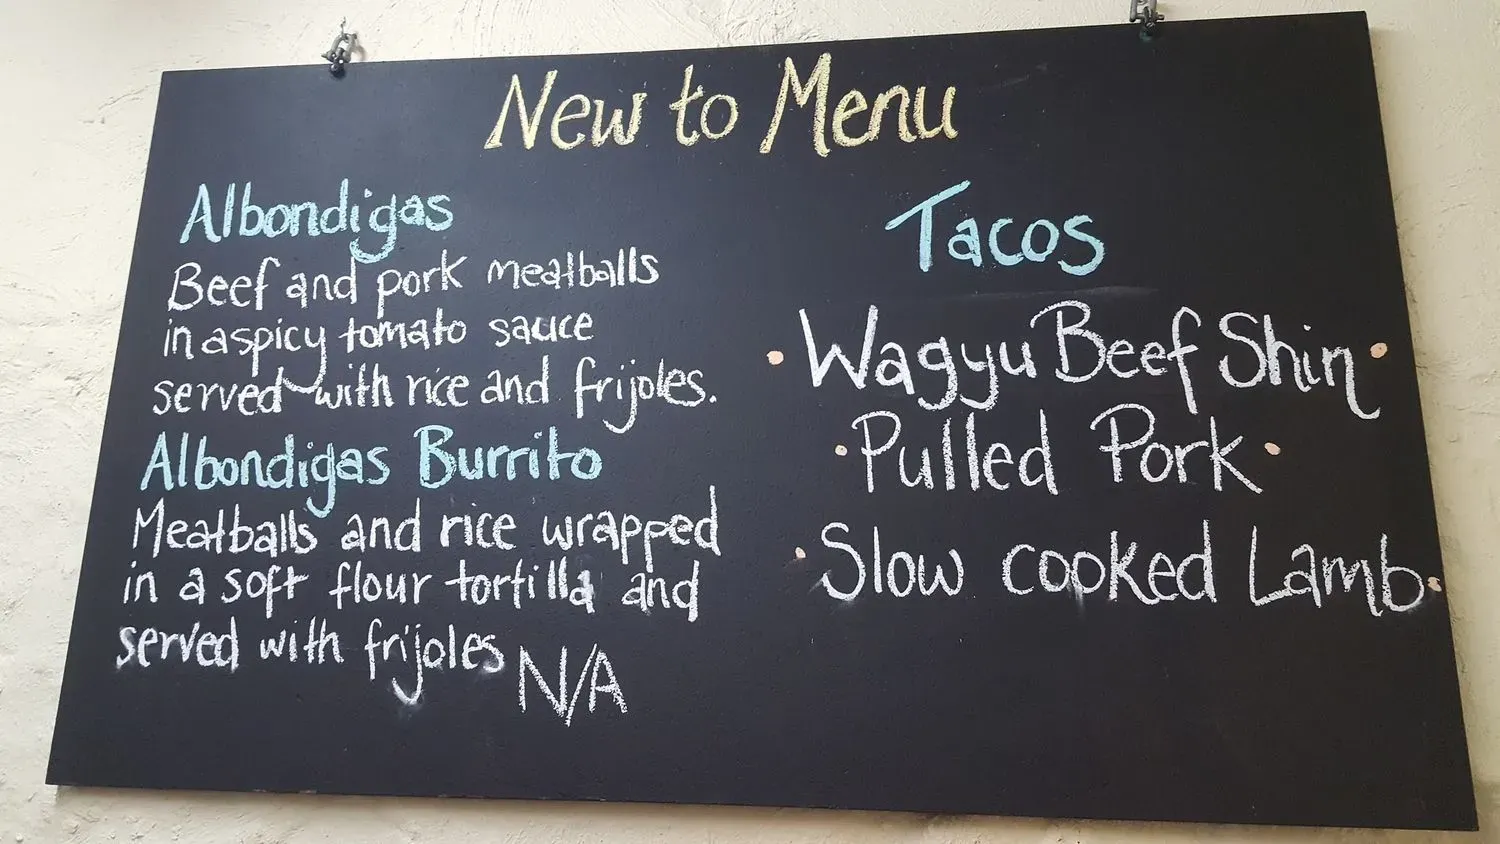 New to Menu
Albondigas
Beef and pork meatballs
in a spicy tomato sauce
served with rice and frijoles.
Albondigas Burrito
Meatballs and rice wrapped
in a soft flour tortilla and
served with frijoles N/A
Tacos
• Wagyu Beef Shin •
• Pulled Pork •
• Slow cooked Lamb •